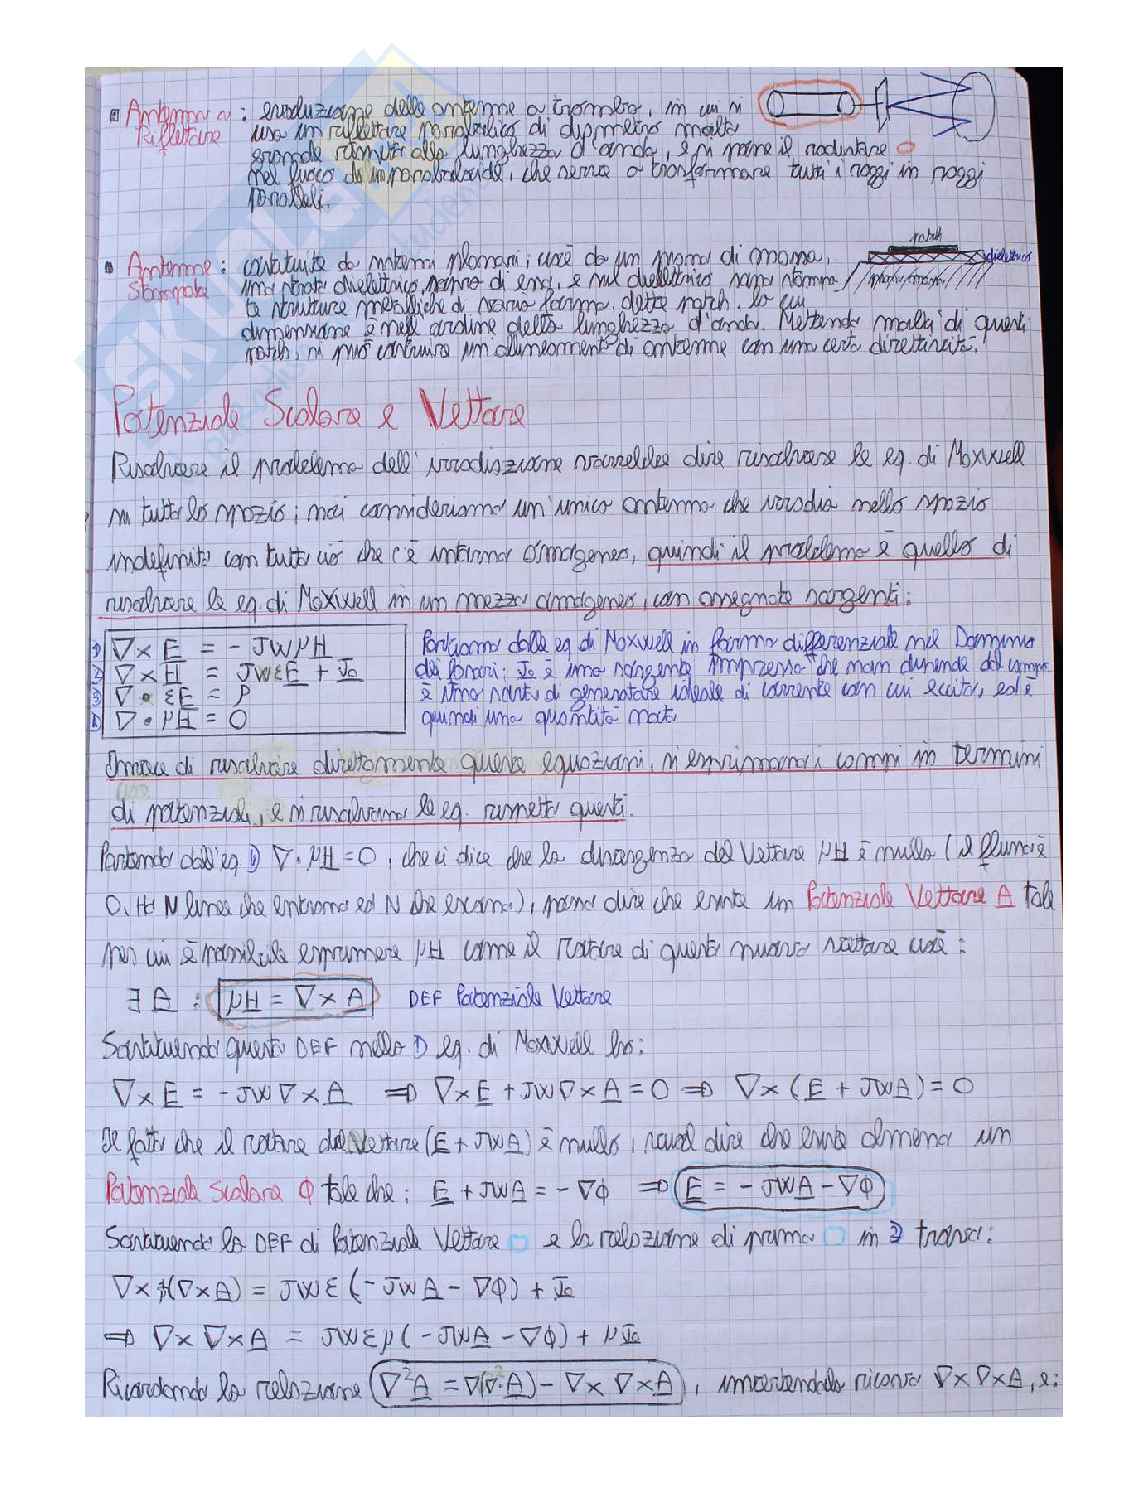 Antenna a : evoluzione delle antenne a tromba, in cui si
Riflettore usa un riflettore parabolico di diametro molto
grande rispetto alla lunghezza d'onda, e si pone il radiatore
nel fuoco di un paraboloide, che serve a trasformare tutti i raggi in raggi
paralleli.
patch
Antenne : costituite da sistemi planari, cioè da un piano di massa,
dielettrico
Stampate uno strato dielettrico sopra di esso, e sul dielettrico sono stampate
le strutture metalliche di varia forma dette patch. la cui
dimensione è nell'ordine della lunghezza d'onda. Mettendo molti di questi
patch, si può costruire un allineamento di antenne con una certa direttività.
Potenziale Scalare e Vettore
Risolvere il problema dell'irradiazione vorrebbe dire risolvere le eq. di Maxwell
in tutto lo spazio; noi consideriamo un'unica antenna che irradia nello spazio
indefinito con tutto ciò che c'è intorno omogeneo, quindi il problema è quello di
risolvere le eq. di Maxwell in un mezzo omogeneo, con assegnate sorgenti:
1) ∇ × E = - JWμH
2) ∇ × H = JWεE + J₀
3) ∇ • εE = ρ
4) ∇ • μH = 0
Partiamo dalle eq di Maxwell in forma differenziale nel Dominio
dei fasori; J₀ è una sorgente Impressa che non dipende dal campo
è una sorta di generatore ideale di corrente con cui eccito, ed è
quindi una quantità nota
Invece di risolvere direttamente queste equazioni, si esprimono i campi in termini
di potenziali, e si risolvono le eq. rispetto questi.
Partendo dall'eq 4) ∇ • μH = 0, che ci dice che la divergenza del Vettore μH è nulla (il flusso è
0, Ho N linee che entrano ed N che escono), posso dire che esiste un Potenziale Vettore A tale
per cui è possibile esprimere μH come il Rotore di questo nuovo vettore cioè:
∃ A : μH = ∇ × A DEF Potenziale Vettore
Sostituendo questa DEF nella 1) eq. di Maxwell ho:
∇ × E = - JW ∇ × A ⇒ ∇ × E + JW ∇ × A = 0 ⇒ ∇ × (E + JWA) = 0
Il fatto che il rotore del Vettore (E + JWA) è nullo, vuol dire che esiste almeno un
Potenziale Scalare Φ tale che: E + JWA = - ∇Φ ⇒ E = - JWA - ∇Φ
Sostituendo la DEF di Potenziale Vettore e la relazione di prima in 2) trovo:
∇ × (∇ × A) = JWε (- JWA - ∇Φ) + J₀
⇒ ∇ × ∇ × A = JWεμ (- JWA - ∇Φ) + μJ₀
Ricordando la relazione ∇²A = ∇(∇·A) - ∇ × ∇ × A, invertendola ricavo ∇ × ∇ × A, e: